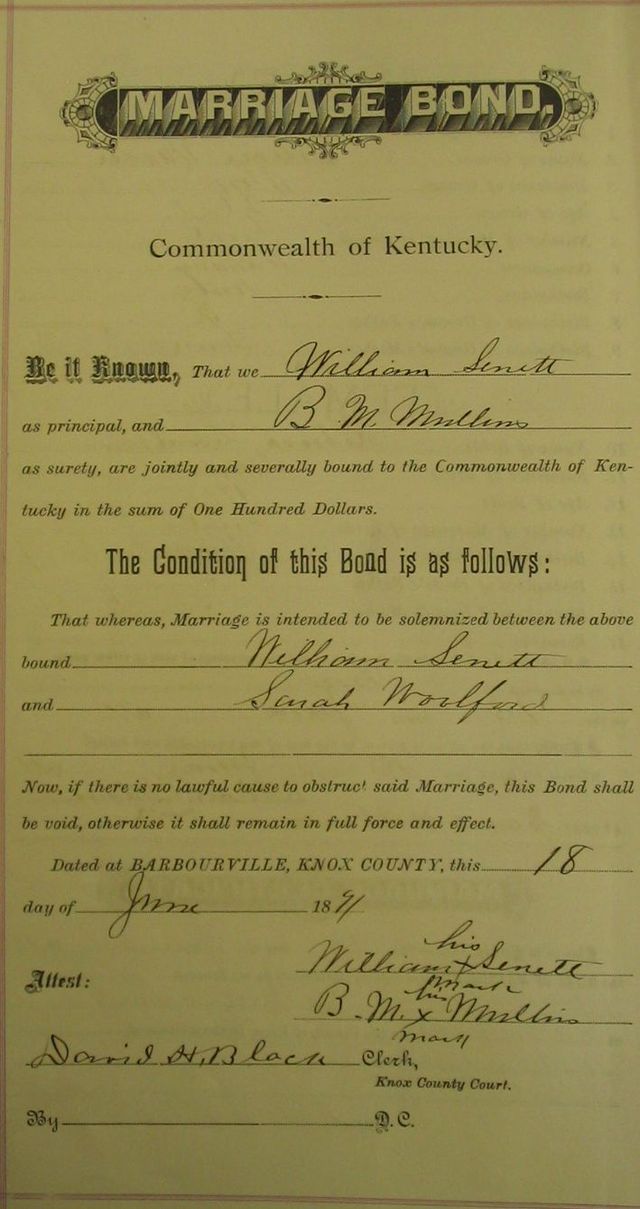 MARRIAGE BOND.
Commonwealth of Kentucky.
Be it Known, That we William Senett
as principal, and B M Mullins
as surety, are jointly and severally bound to the Commonwealth of Ken-
tucky in the sum of One Hundred Dollars.
The Condition of this Bond is as follows:
That whereas, Marriage is intended to be solemnized between the above
bound William Senett
and Sarah Woolford
Now, if there is no lawful cause to obstruct said Marriage, this Bond shall
be void, otherwise it shall remain in full force and effect.
Dated at BARBOURVILLE, KNOX COUNTY, this 18
day of June 1891
his
William x Senett
Attest: mark
his
B. M. x Mullins
mark
David H. Black Clerk,
Knox County Court.
By D. C.